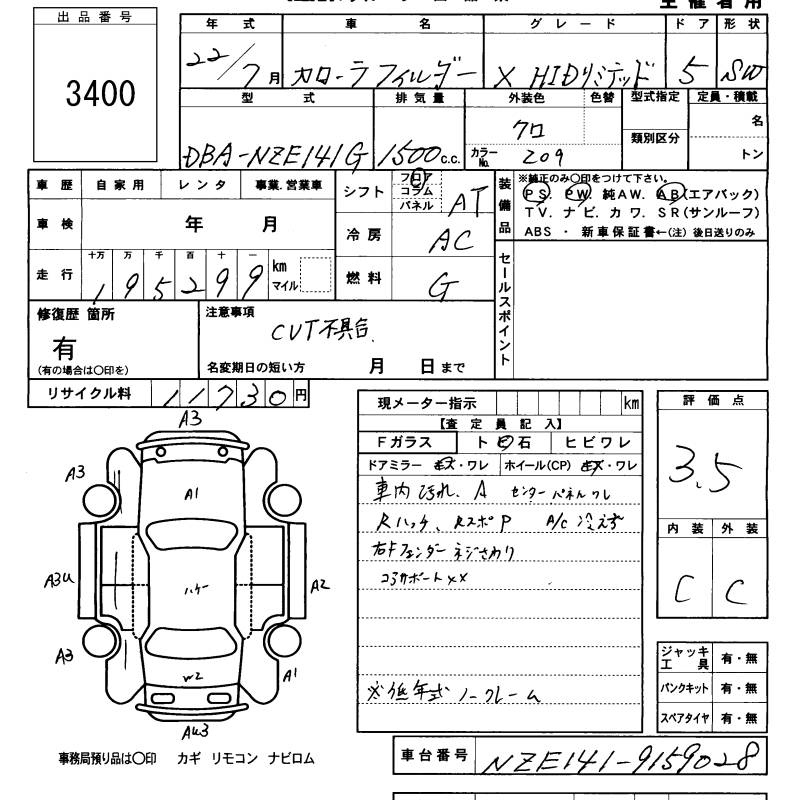 主催者用
出品番号
3400
年式 車名 グレード ドア 形状
22/7月 カローラフィルダー X HIDリミテッド 5 SW
型式 排気量 外装色 色替 型式指定 定員・積載
DBA-NZE141G 1500c.c. クロ 類別区分 名
カラーNo. 209 トン
車歴 自家用 レンタ 事業.営業車
車検 年 月
走行 十万 万 千 百 十 一
195299 km マイル
シフト フロア コラム パネル AT
冷房 AC
燃料 G
装備品 ※純正のみ○印をつけて下さい。
PS. PW. 純AW. AB(エアバック)
TV. ナビ. カワ. SR(サンルーフ)
ABS ・ 新車保証書←(注) 後日送りのみ
セールスポイント
修復歴 箇所
有
(有の場合は○印を)
注意事項
CVT不具合
名変期日の短い方 月 日まで
リサイクル料 11730円
現メーター指示 km
【査定員記入】
Fガラス ト日石 ヒビワレ
ドアミラー キズ・ワレ ホイール(CP) キズ・ワレ
車内汚れ、A センターパネルワレ
Rハッチ、RスポP A/C冷えず
右Fフェンダーネジさわり
コアサポートXX
※低年式ノークレーム
評価点
3.5
内装 外装
C C
ジャッキ工具 有・無
パンクキット 有・無
スペアタイヤ 有・無
A3
A3
A1
A3U
ハゲー
A2
A3
W2
A1
AU3
事務局預り品は○印 カギ リモコン ナビロム
車台番号 NZE141-9159028